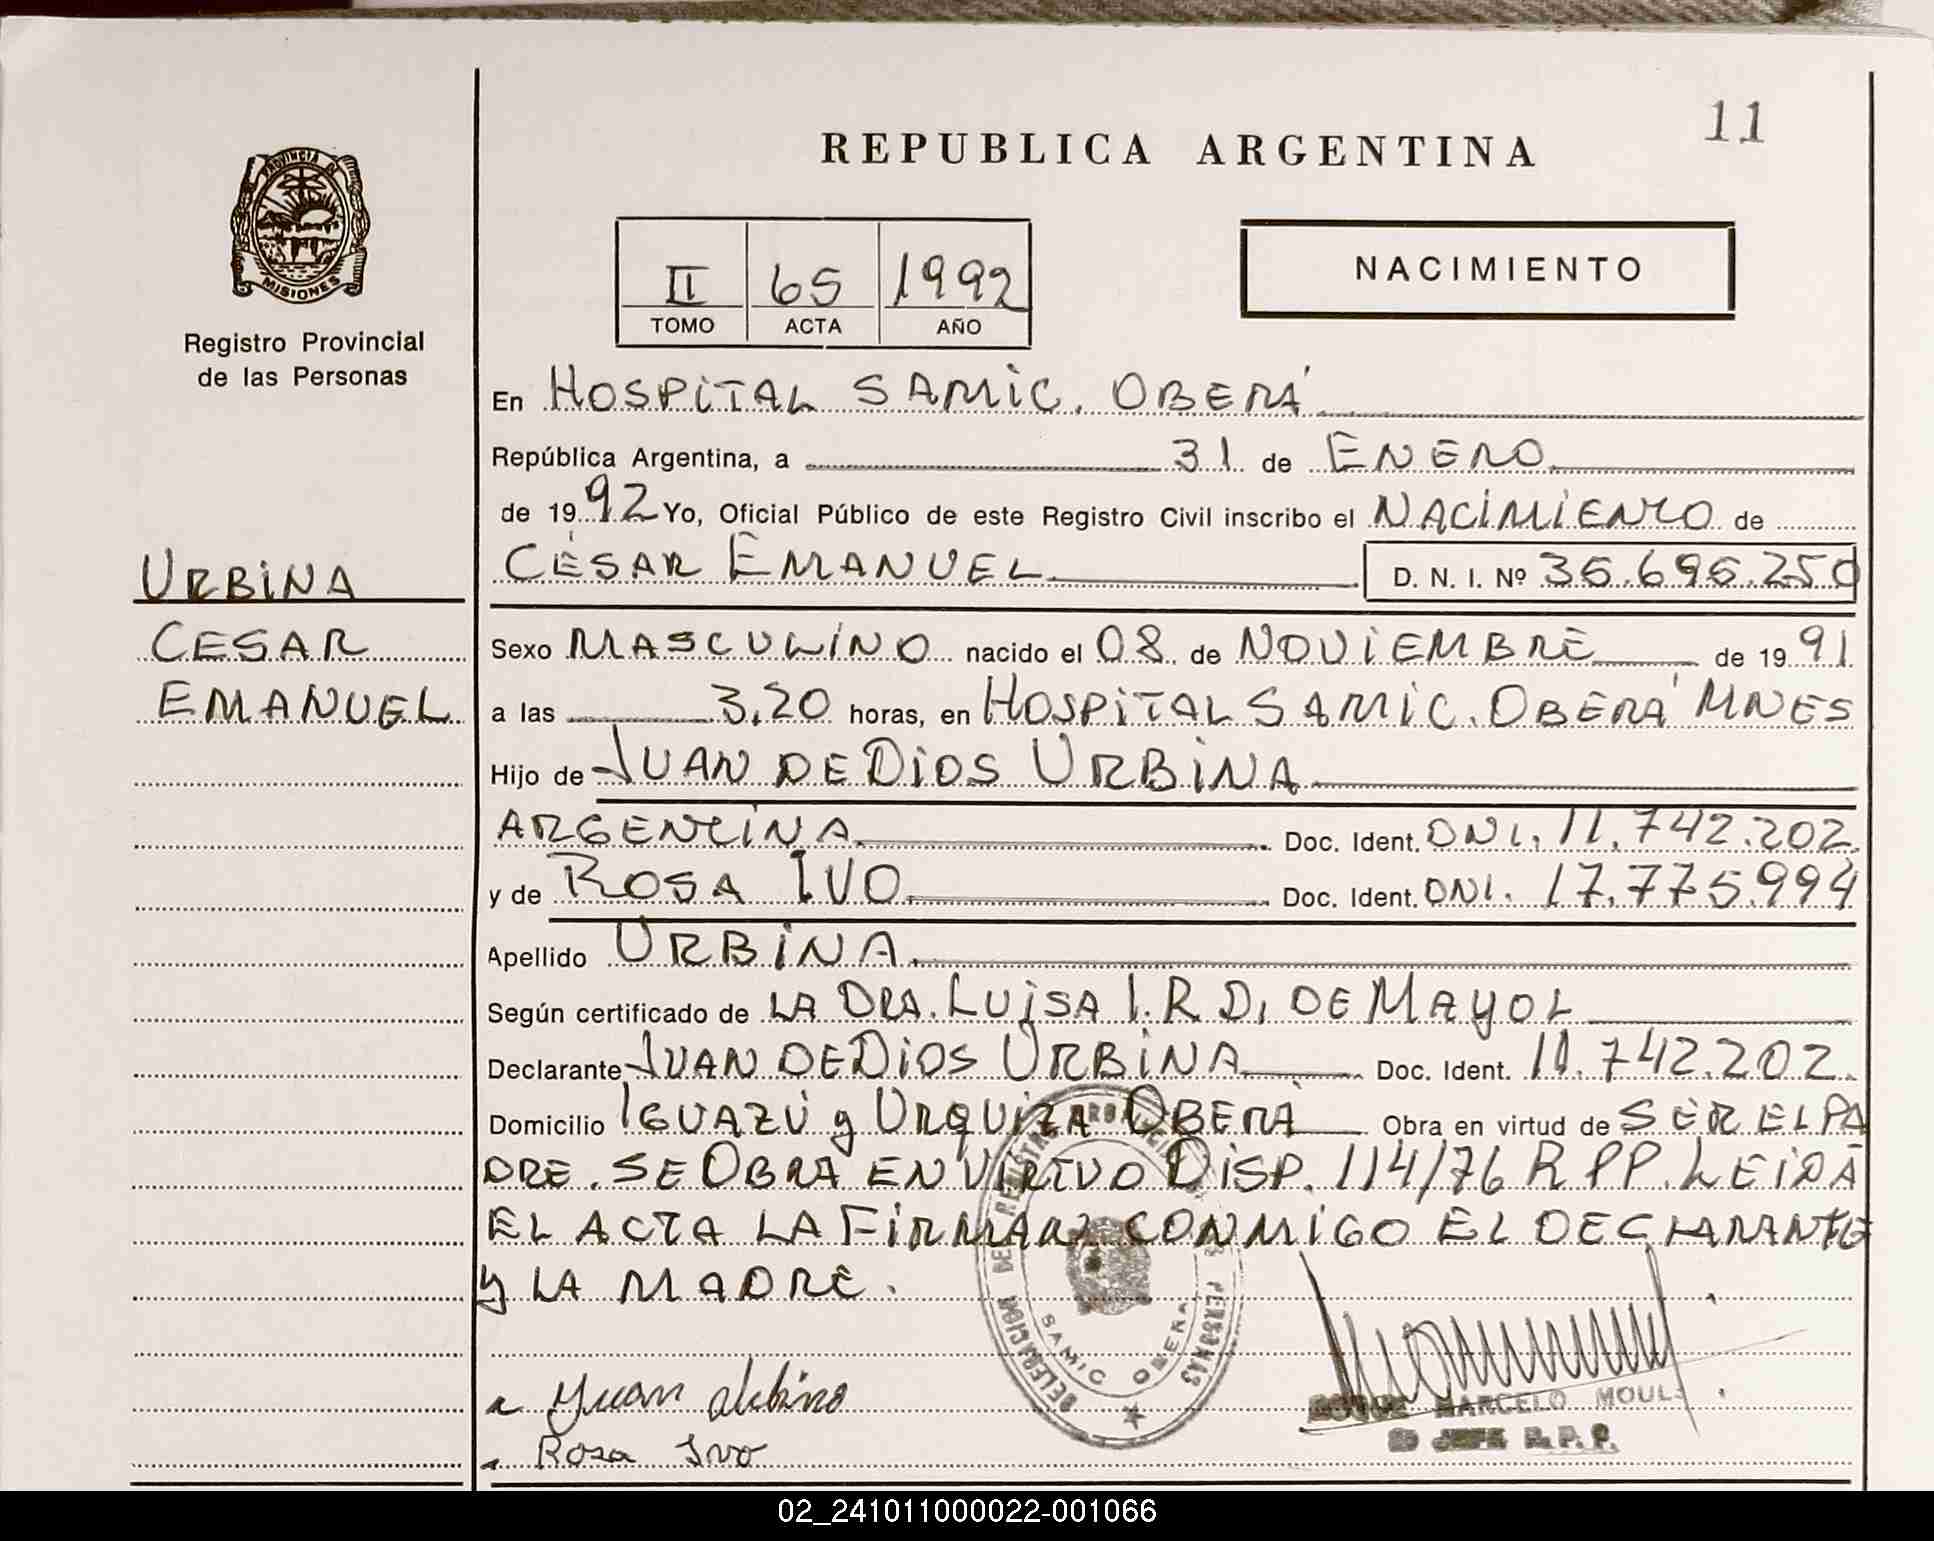 11
REPUBLICA ARGENTINA
PROVINCIA DE
MISIONES
Registro Provincial
de las Personas
II 65 1992
TOMO ACTA AÑO
NACIMIENTO
En HOSPITAL SAMIC. OBERÁ
República Argentina, a 31 de ENERO
de 1992 Yo, Oficial Público de este Registro Civil inscribo el NACIMIENTO de
URBINA
CÉSAR EMANUEL D. N. I. Nº 36.696.250
CESAR
EMANUEL
Sexo MASCULINO nacido el 08 de NOVIEMBRE de 1991
a las 3,20 horas, en HOSPITAL SAMIC. OBERÁ MNES
Hijo de JUAN DE DIOS URBINA
ARGENTINA Doc. Ident. DNI. 11.742.202
y de ROSA IVO Doc. Ident. DNI. 17.775.994
Apellido URBINA
Según certificado de LA DRA. LUISA I. R D, DE MAYOL
Declarante JUAN DE DIOS URBINA Doc. Ident. 11.742.202.
Domicilio IGUAZÚ y URQUIZA OBERÁ Obra en virtud de SER EL PA
DRE. SE OBRA EN VIRTUD DISP. 114/76 R PP. LEIDA
EL ACTA LA FIRMAN CONMIGO EL DECLARANTE
y LA MADRE.
DELEGACION DEL REGISTRO PROVINCIAL PERSONAS
SAMIC OBERA
Juan Urbina
Rosa Ivo
ROQUE MARCELO MOUL
JEFE R.P.P.
02_241011000022-001066